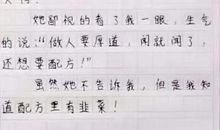 她鄙视的看了我一眼，生气
的说：“做人要厚道，闻就闻了，
还想要配方！”
虽然她不告诉我，但是我知
道配方里有韭菜！